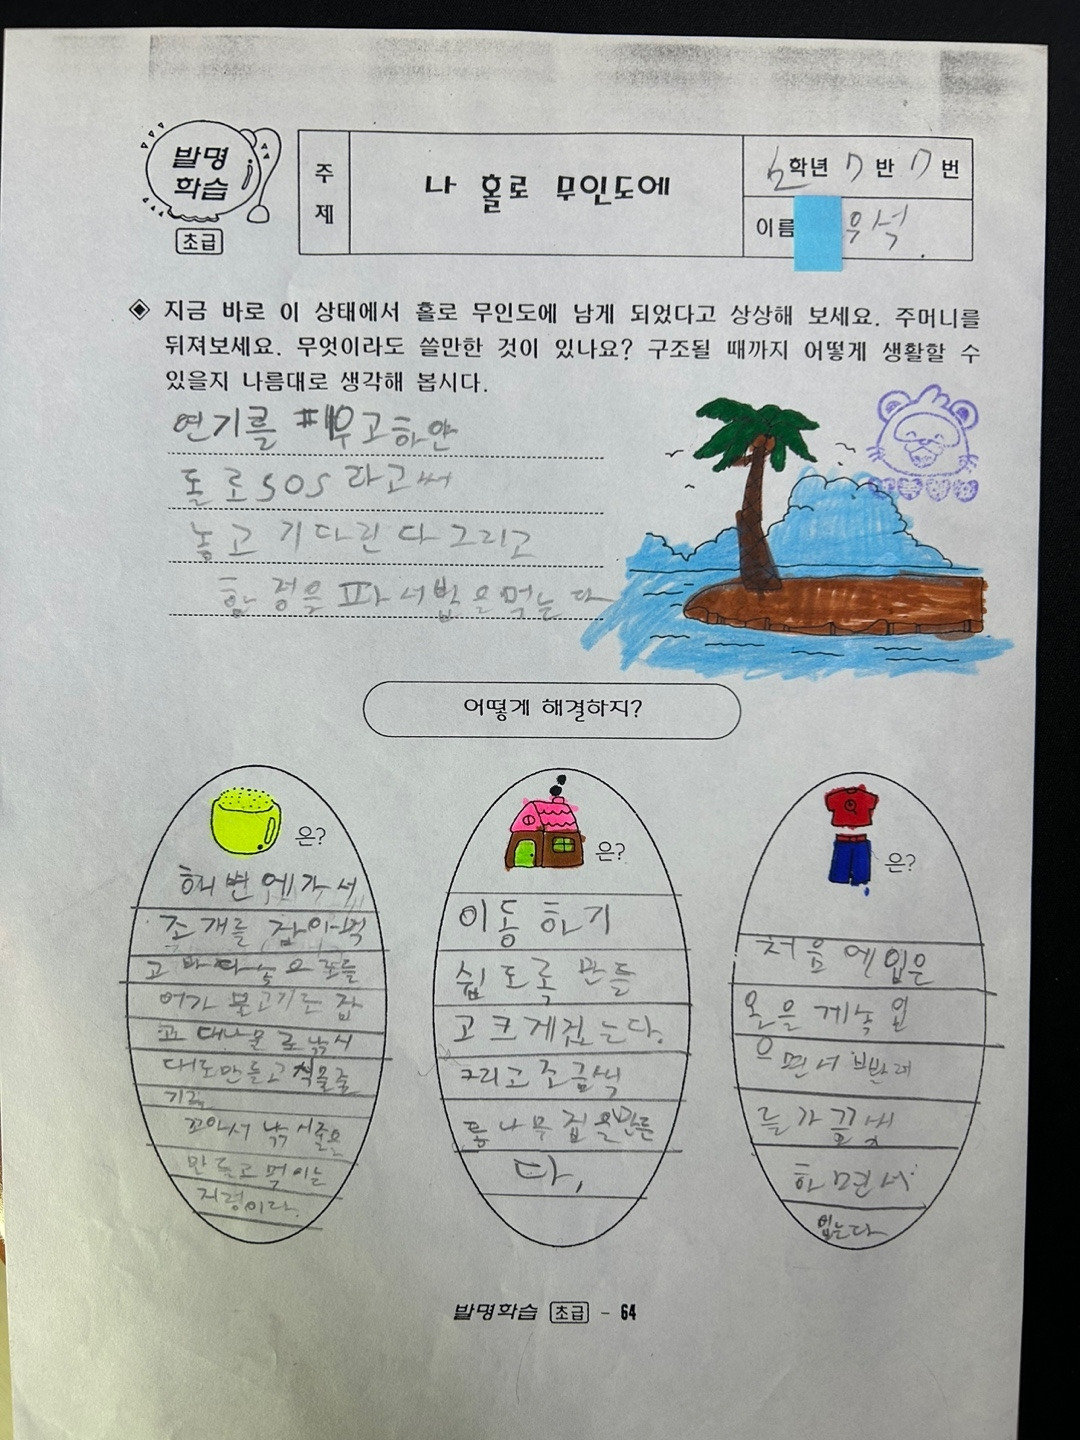 발명
학습
초급
주
제
나 홀로 무인도에
학년 7 반 7 번
이름 우석
지금 바로 이 상태에서 홀로 무인도에 남게 되었다고 상상해 보세요. 주머니를
뒤져보세요. 무엇이라도 쓸만한 것이 있나요? 구조될 때까지 어떻게 생활할 수
있을지 나름대로 생각해 봅시다.
연기를 패우고하얀
돌로SOS라고써
놓고 기다린다 그리고
함정을 파서밥을먹는다
어떻게 해결하지?
은?
해변에가서
조개를 잡아먹
고
물고기는 잡
고 대나무로낚시
대도만들고
꼬아서 낚시줄을
만들고 먹이는
지렁이다.
은?
이동하기
쉽도록 만들
고 크게짓는다.
그리고 조금씩
통나무집을만든
다,
은?
처음에입은
옷을 계속 입
으면서 빨래
를가끔씩
하면서
입는다
발명학습 초급 - 64